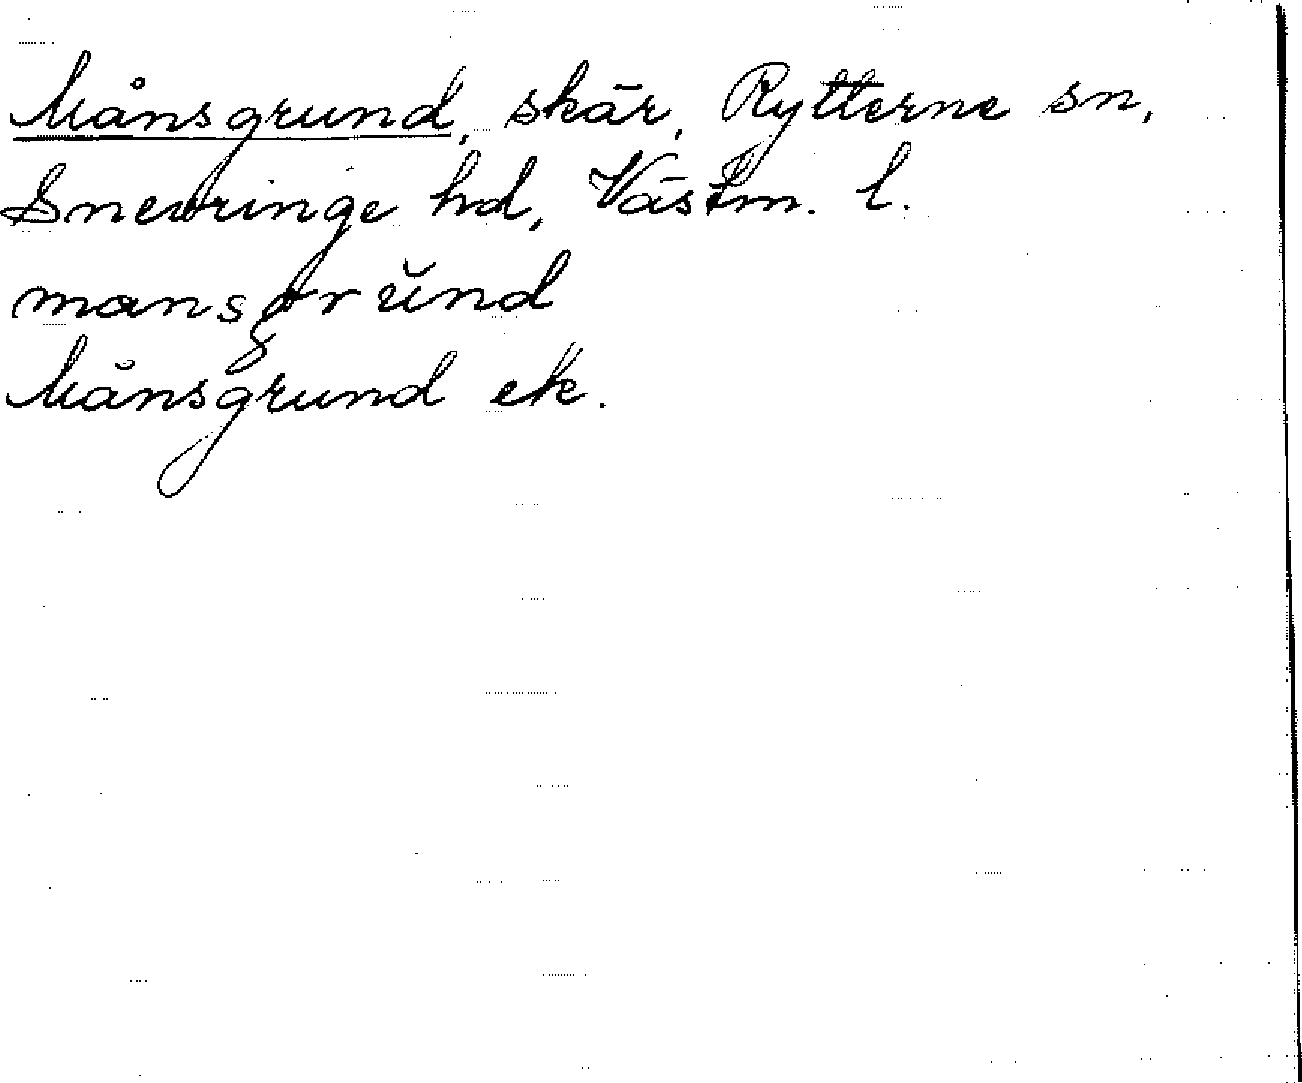 Månsgrund, skär, Rytterne sn,
Snevringe hd, Västm. l.
mansgrŭnd
Månsgrund ek.